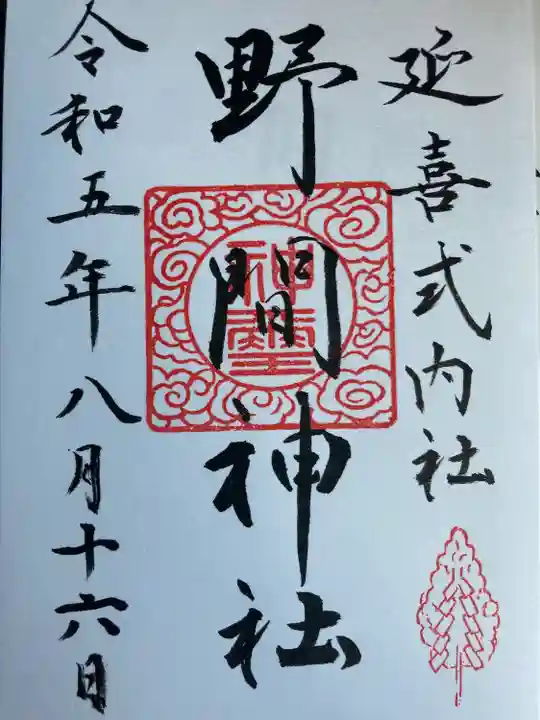 延喜式内社
野間神社
神璽
令和五年八月十六日